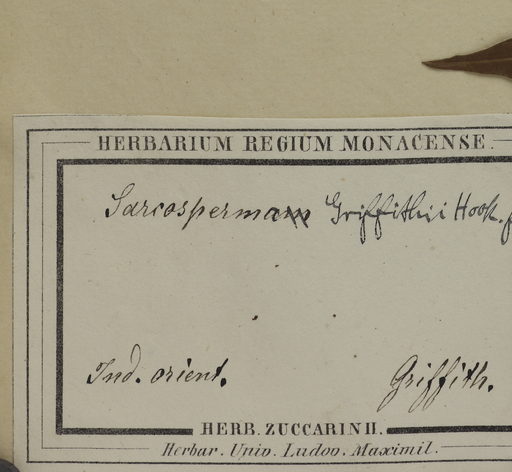 HERBARIUM REGIUM MONACENSE.
Sarcosperma Griffithii Hook. f
Ind. orient.
Griffith.
HERB. ZUCCARINII.
Herbar. Univ. Ludov. Maximil.